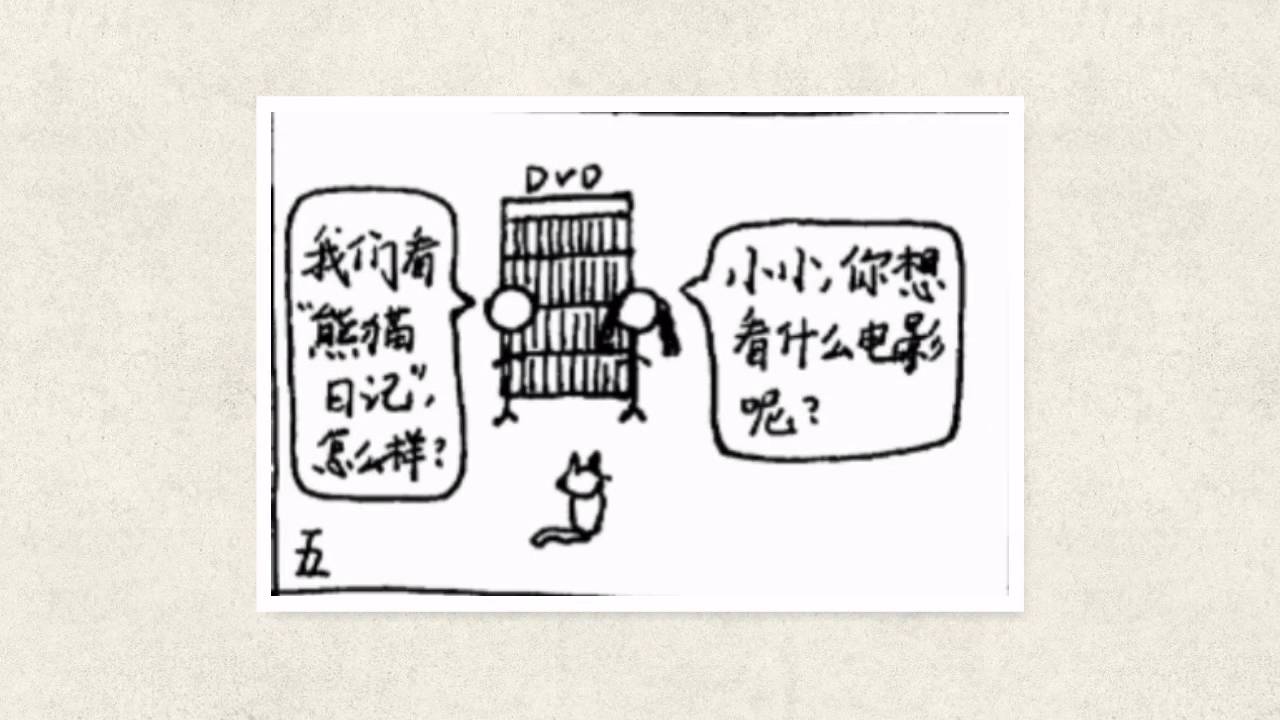 DVD
我们看
“熊猫
日记”,
怎么样?
小小,你想
看什么电影
呢?
五